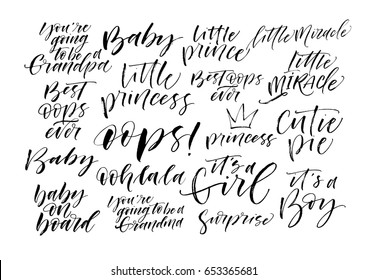 You're
going
to be a
Grandpa
Baby
little
prince
little Miracle
little
princess
Best oops
ever
little
MIRACLE
Best
oops
ever
oops!
princess
cutie
pie
Baby
oohlala
it's a
Girl
it's a
Boy
baby
on
board
You're
going to be a
Grandma
Surprise
shutterstock.com · 653365681